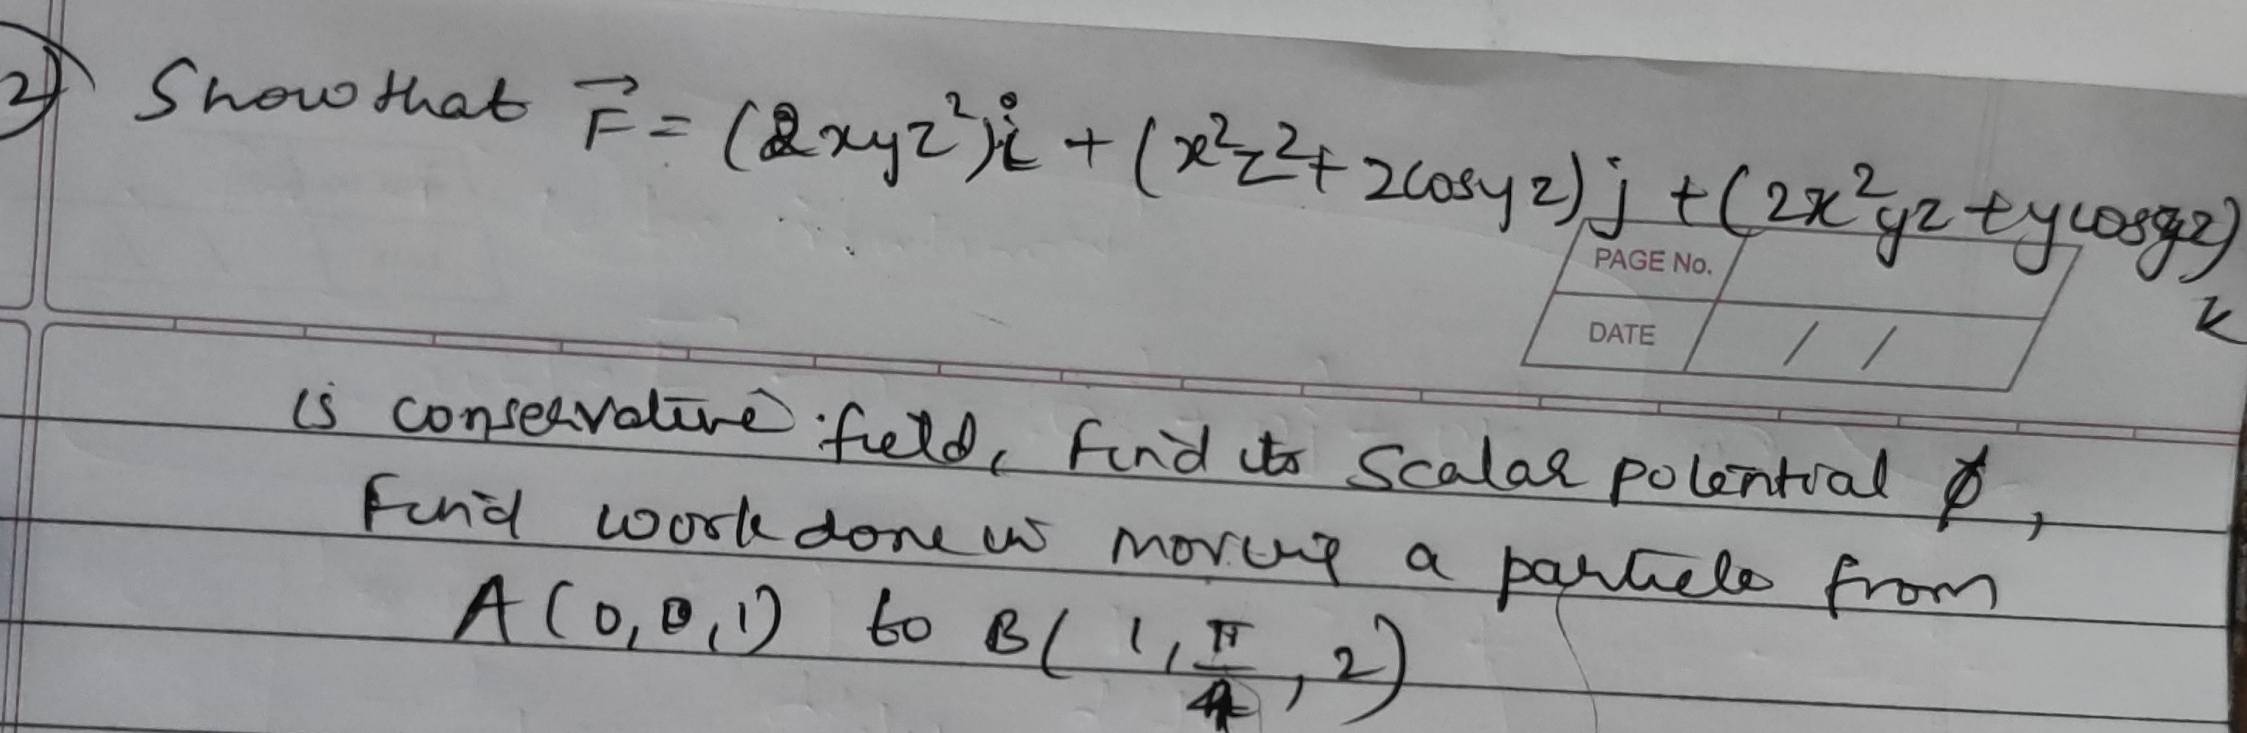 2) Show that F⃗ = (2xyz²)i + (x²z² + zcosyz)j + (2x²yz + ycosyz)
k
PAGE No.
DATE / /
is conservative field, Find its Scalar potential ϕ,
Find work done in moving a particle from
A(0,0,1) to B(1, π/4, 2)